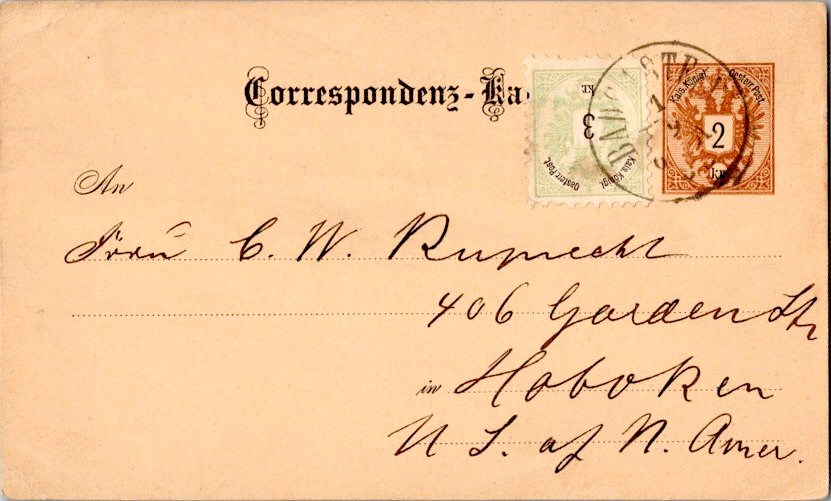 Correspondenz-Ka
Kais. Königl.
Oesterr. Post
3
kr.
Kais. Königl.
Oesterr. Post
2
kr.
An
Frau C. W. Ruprecht
406 Garden Str
in Hoboken
U S. of N. Amer.